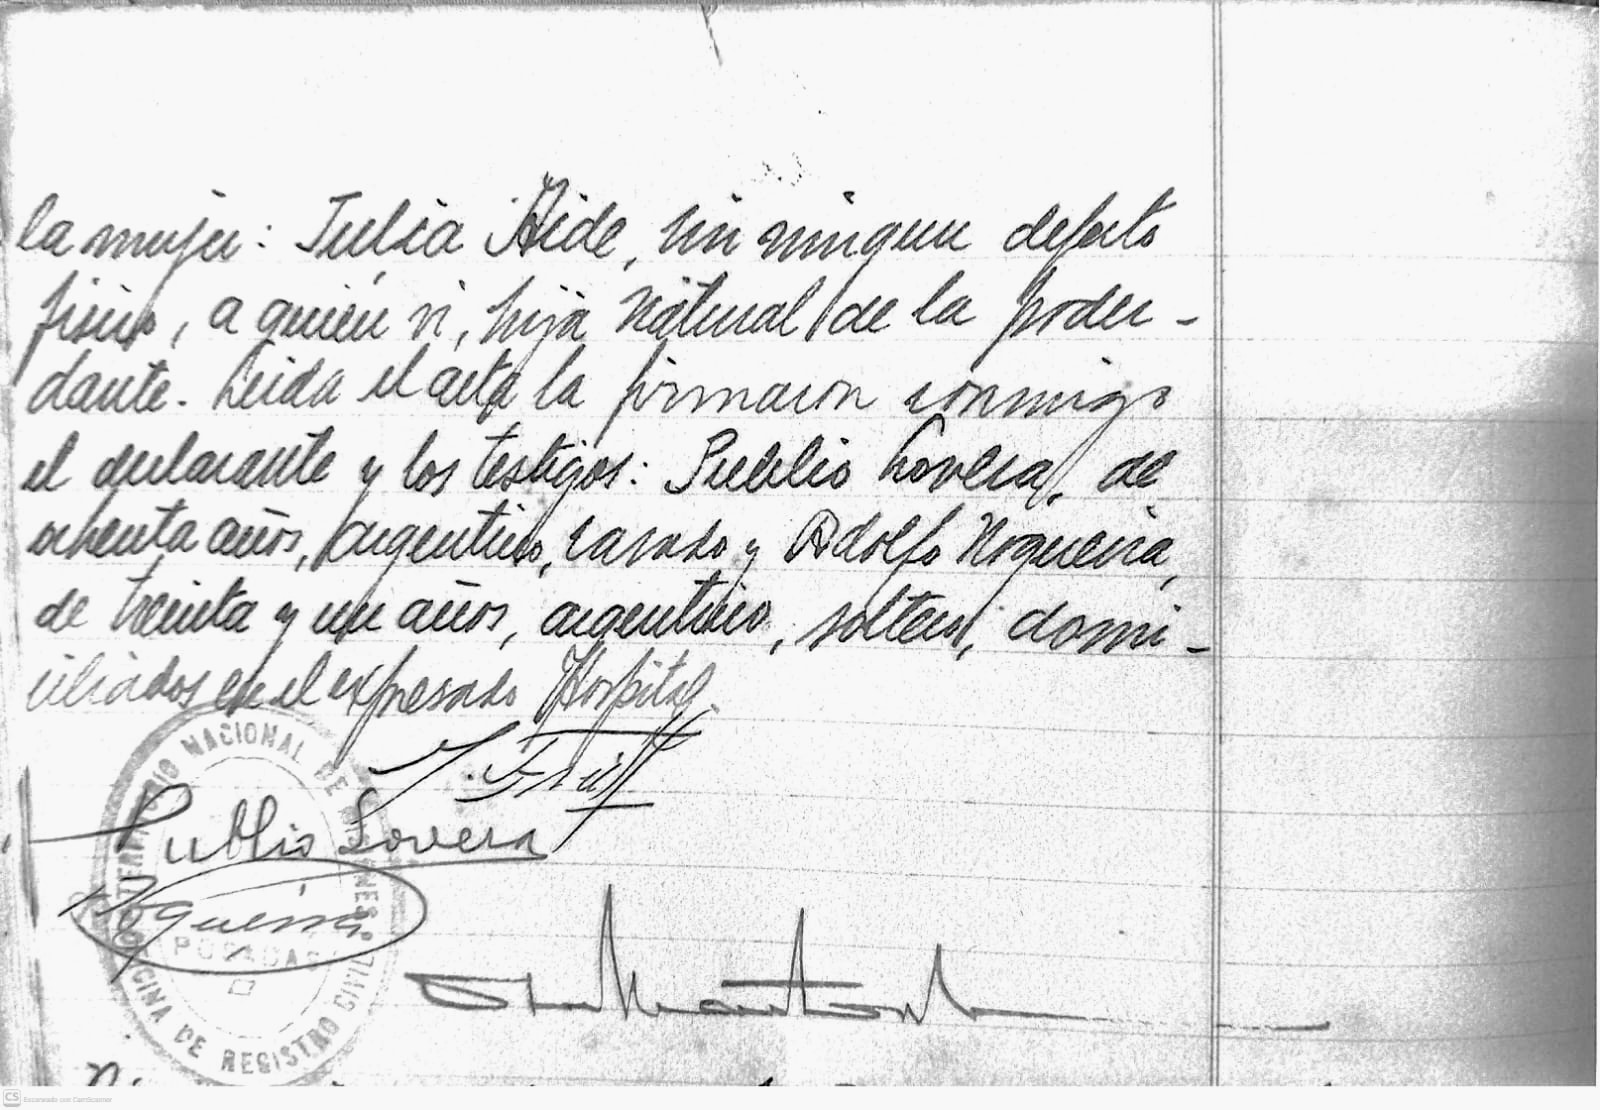 la mujer: Julia Aide, sin ningun defecto
fisico, a quién vi, hija natural de la poder-
dante. Leida el acta la firmaron conmigo
el declarante y los testigos: Publio Lovera, de
ochenta años, argentino, casado y Adolfo Nogueira,
de treinta y un años, argentino, soltero, domi-
ciliados en el expresado Hospital.
Publio Lovera
Nogueira
TERRITORIO NACIONAL DE MISIONES
POSADAS
OFICINA DE REGISTRO CIVIL
CS Escaneado con CamScanner